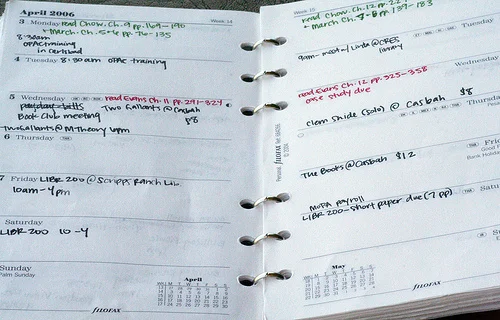 April 2006
Week 14
3 Monday read Chow. Ch. 9 pp. 169-190
+ March. Ch. 5+6 pp. 76-135
8:30am
OPAC training
in Carlsbad
4 Tuesday 8:30am OPAC training
5 Wednesday read Evans Ch. 11 pp. 291-324
paydaet bills
Two Gallants @ Casbah
Book Club meeting
$8
Two Gallants @ M-Theory 6pm
6 Thursday
7 Friday LIBR 200 @ Scripps Ranch Lib.
10am-4pm
Saturday
LIBR 200 10-4
Sunday
Palm Sunday
April
FILOFAX
Week 15
read Chow. Ch. 12 pp. 22
+ March Ch. 7+8 pp. 137-183
9am- meet w/ Linda @ CRES
library
Tuesday
read Evans Ch. 12 pp. 325-358
case study due
Wednesday
Clem Snide (solo) @ Casbah $8
Thursday
Personal FILOFAX
© 2004
The Boots @ Casbah $12
Fri
Good F
Bank Holida
MOPA payroll
LIBR 200-short paper due (7 pp)
Satu
Su
May
FILOFAX